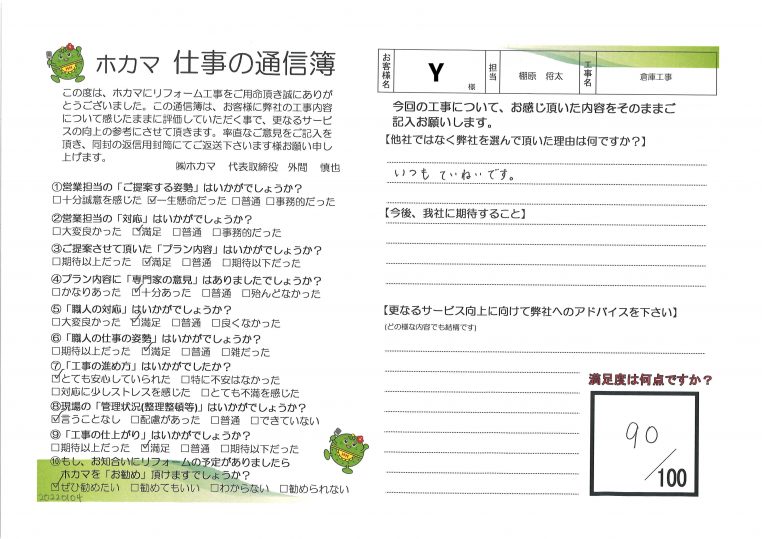 ホカマ 仕事の通信簿
この度は、ホカマにリフォーム工事をご用命頂き誠にありが
とうございました。この通信簿は、お客様に弊社の工事内容
について感じたままに評価していただく事で、更なるサービ
スの向上の参考にさせて頂きます。率直なご意見をご記入を
頂き、同封の返信用封筒にてご返送下さいます様お願い申し
上げます。
㈱ホカマ 代表取締役 外間 慎也
①営業担当の「ご提案する姿勢」はいかがでしょうか?
□十分誠意を感じた ☑一生懸命だった □普通 □事務的だった
②営業担当の「対応」はいかがでしょうか?
□大変良かった ☑満足 □普通 □事務的だった
③ご提案させて頂いた「プラン内容」はいかがでしょうか?
□期待以上だった ☑満足 □普通 □期待以下だった
④プラン内容に「専門家の意見」はありましたでしょうか?
□かなりあった ☑十分あった □普通 □殆んどなかった
⑤「職人の対応」はいかがでしょうか?
□大変良かった ☑満足 □普通 □良くなかった
⑥「職人の仕事の姿勢」はいかがでしょうか?
□期待以上だった ☑満足 □普通 □雑だった
⑦「工事の進め方」はいかがでしたか?
☑とても安心していられた □特に不安はなかった
□対応に少しストレスを感じた □とても不満を感じた
⑧現場の「管理状況(整理整頓等)」はいかがでしょうか?
☑言うことなし □配慮があった □普通 □できていない
⑨「工事の仕上がり」はいかがでしょうか?
□期待以上だった ☑満足 □普通 □期待以下だった
⑩もし、お知合いにリフォームの予定がありましたら
ホカマを「お勧め」頂けますでしょうか?
☑ぜひ勧めたい □勧めてもいい □わからない □勧められない
20220104
お客様名 Y 様 担当 棚原 将太 工事名 倉庫工事
今回の工事について、お感じ頂いた内容をそのままご
記入お願いします。
【他社ではなく弊社を選んで頂いた理由は何ですか?】
いつも ていねいです。
【今後、我社に期待すること】
【更なるサービス向上に向けて弊社へのアドバイスを下さい】
(どの様な内容でも結構です)
満足度は何点ですか?
90
/100